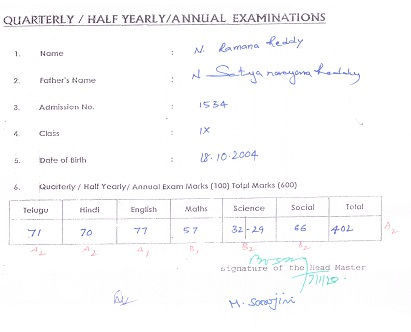 QUARTERLY / HALF YEARLY/ANNUAL EXAMINATIONS
1. Name : N. Ramana Reddy
2. Father's Name : N Satya narayana Reddy
3. Admission No. : 1534
4. Class : IX
5. Date of Birth : 18.10.2004
6. Quarterly / Half Yearly/ Annual Exam Marks (100) Total Marks (600)
Telugu Hindi English Maths Science Social Total
71 70 77 57 32-29 66 402 A2
A2 A2 A1 B1 B2 A2
Signature of the Head Master
M. Sarojini